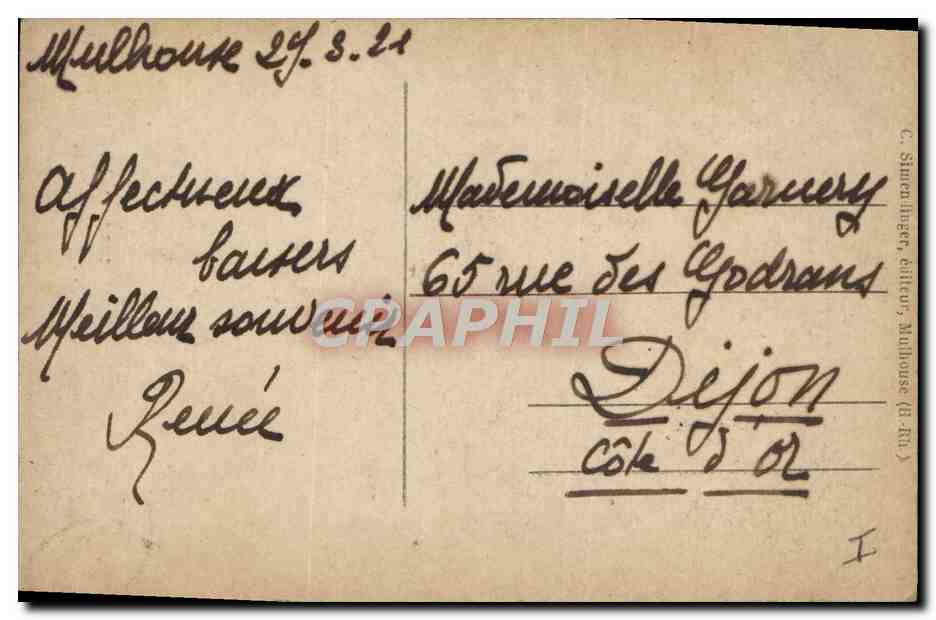 Mulhouse 27.3.21
Affectueux
baisers
Meilleur souvenir
Renée
Mademoiselle Garnery
65 rue des Godrans
Dijon
Côte d'Or
C. Simendinger, éditeur, Mulhouse (H.-Rh.)
I
CRAPHIL